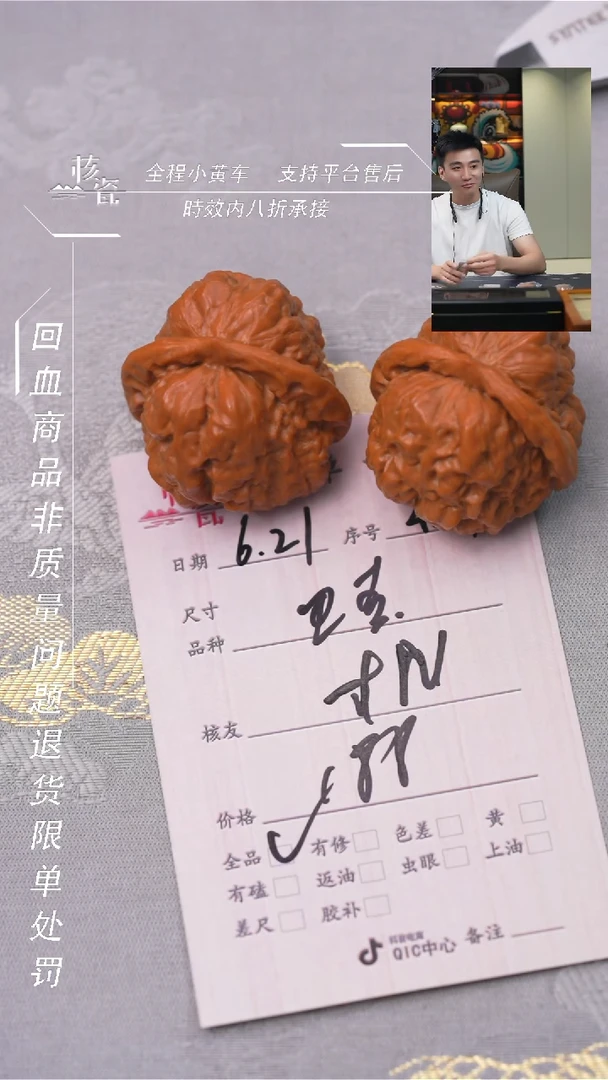 核瓷
全程小黄车 支持平台售后
時效内八折承接
回血商品非质量问题退货限单处罚
日期 6.21 序号
尺寸
品种
核友
价格
全品 有修 色差 黄
有磕 返油 虫眼 上油
差尺 胶补
抖音电商
QIC中心 备注